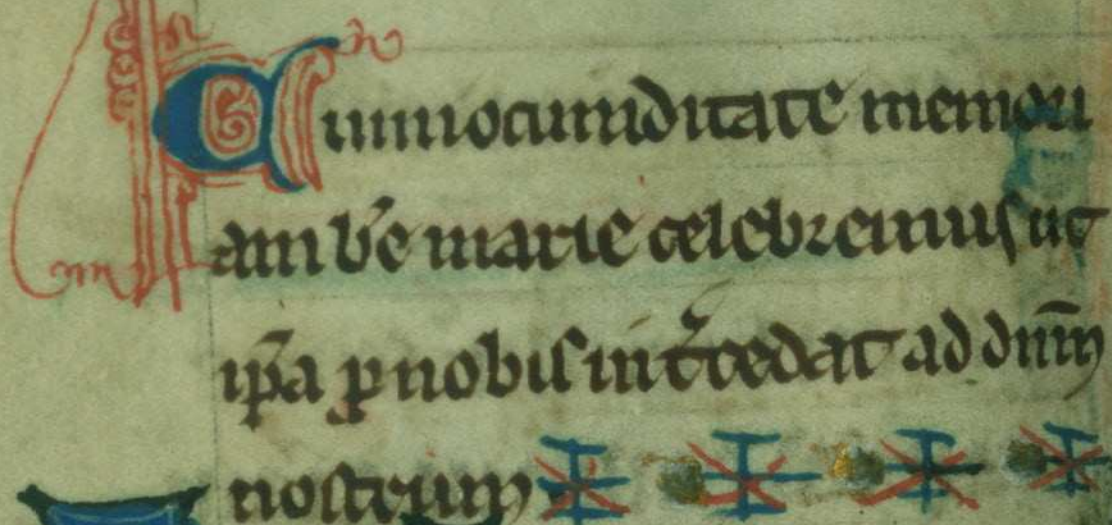 Cum iocunditate memori
am b̄e marie celebremus ut
ip̄a ꝓ nobis int̾cedat ad dn̄m
nostrum